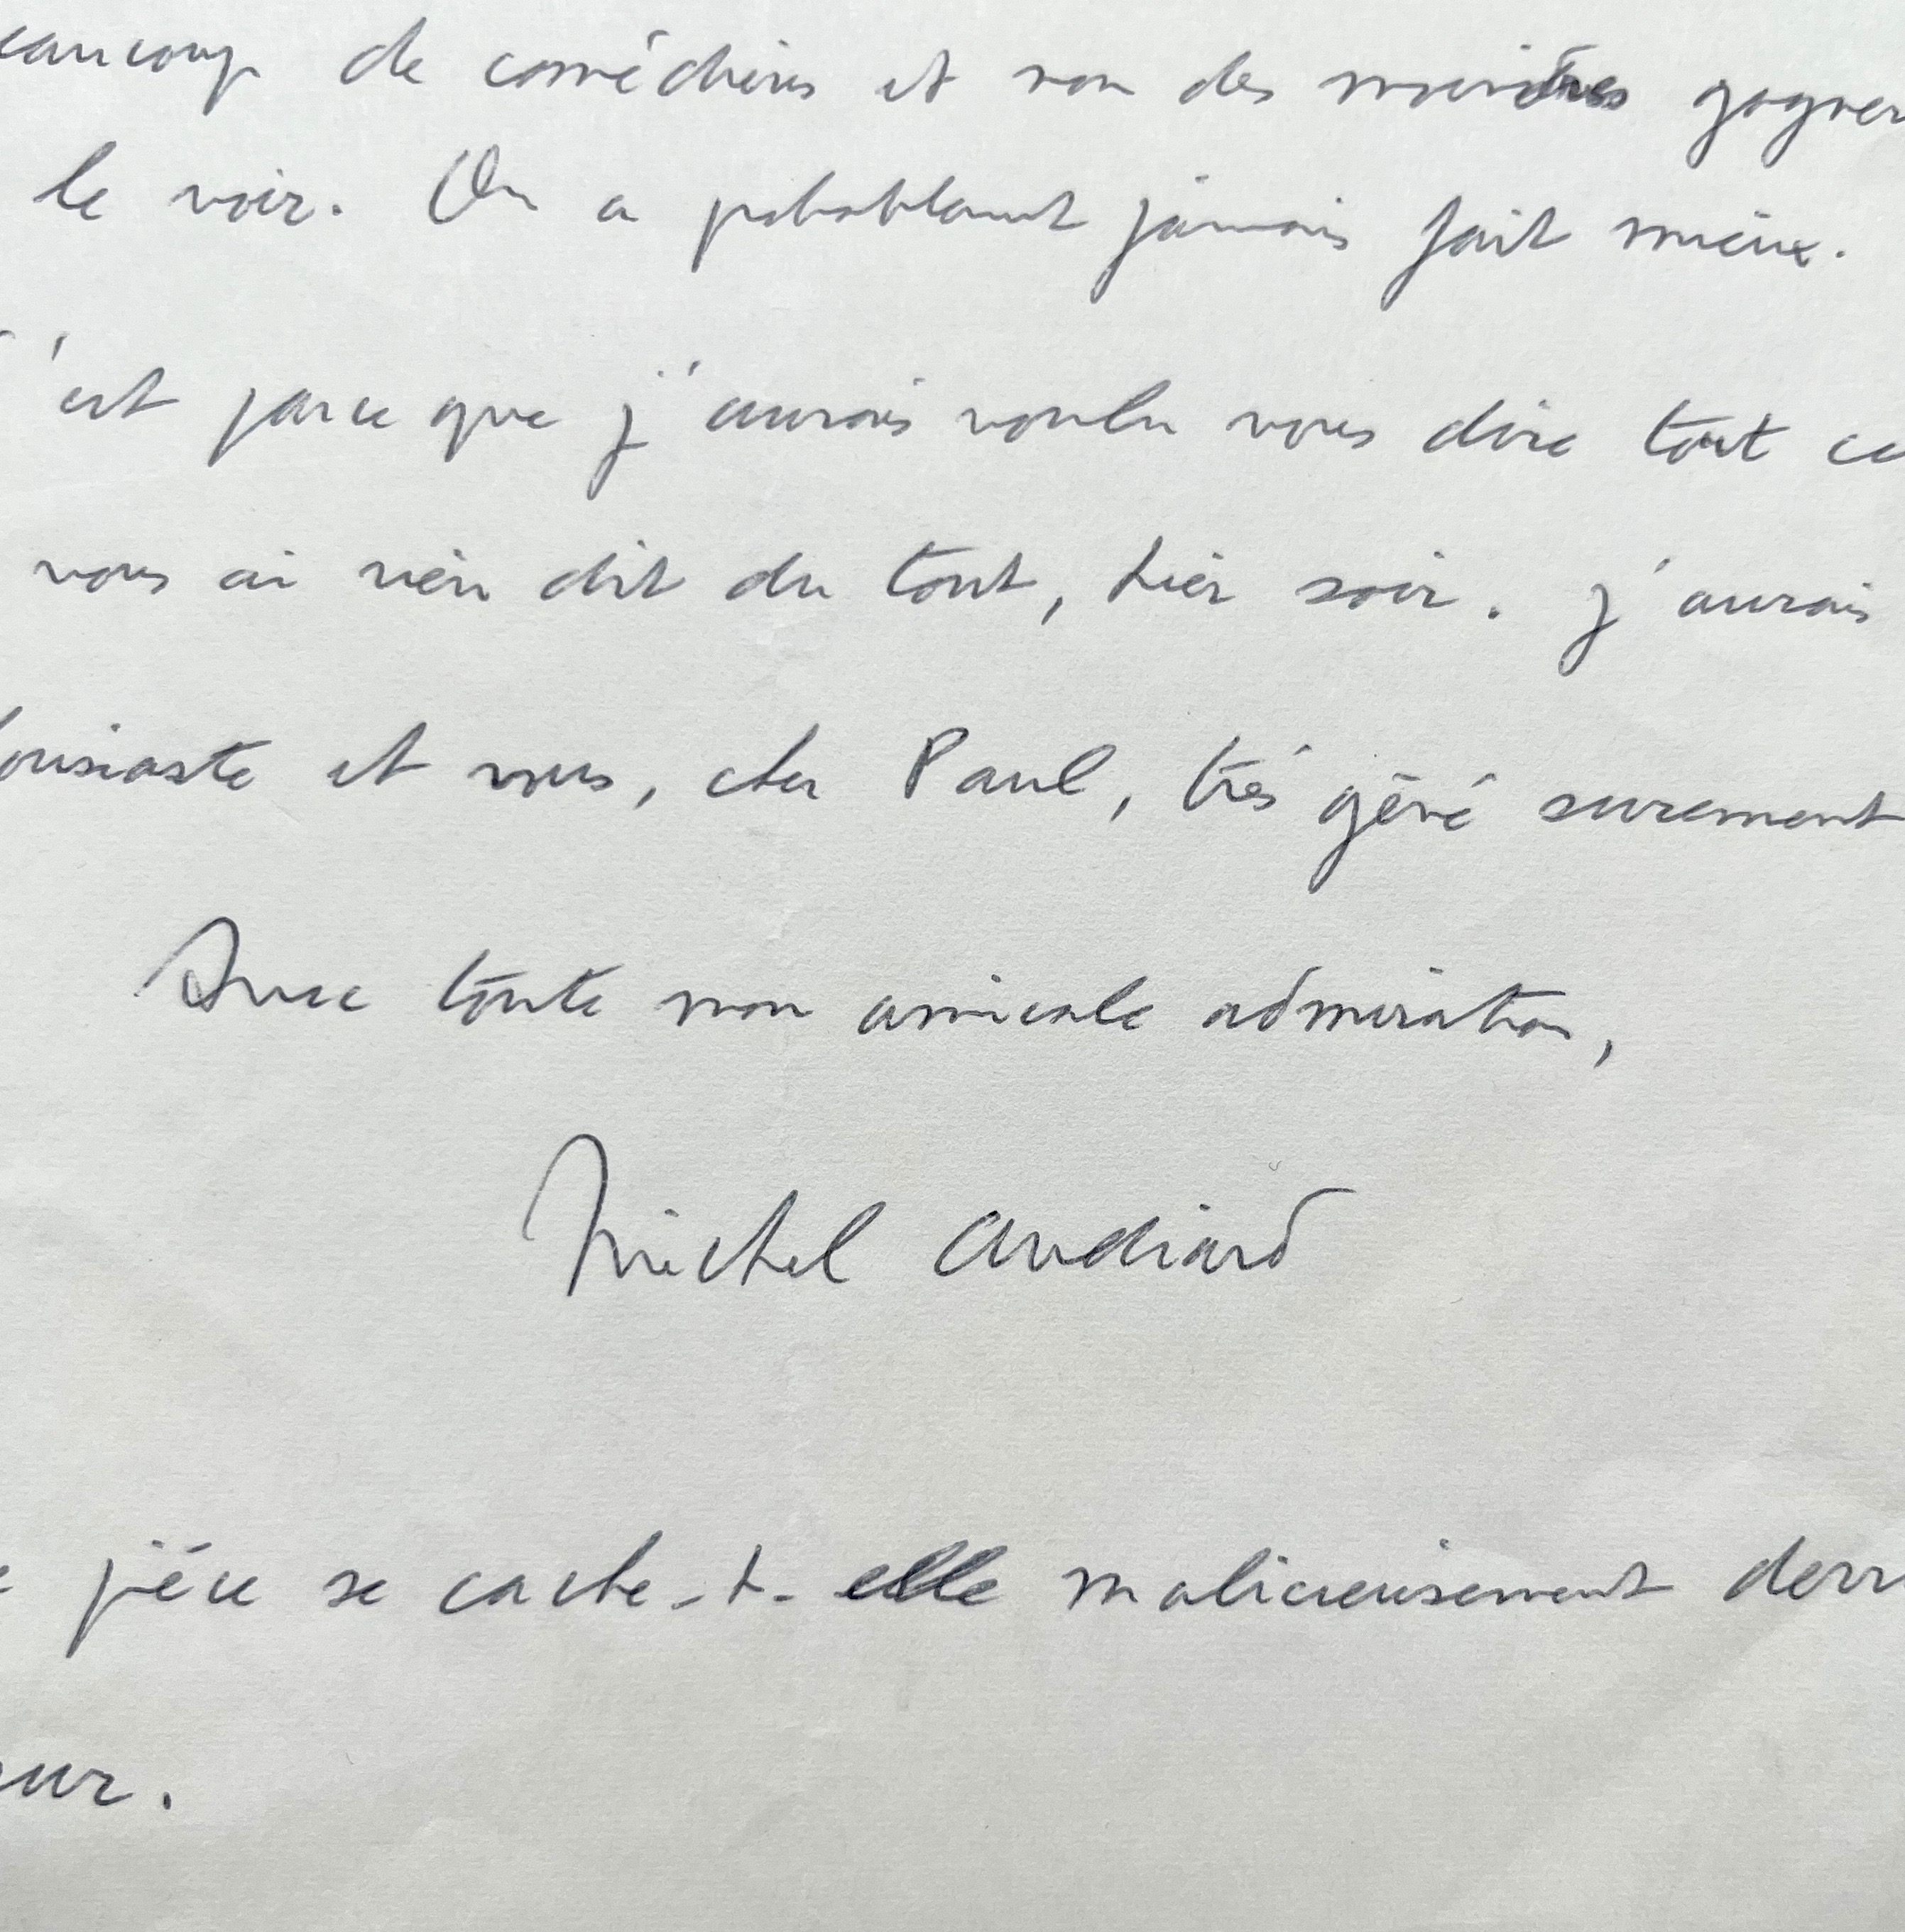 eaucoup de comédiens et non des moindres gagner
le voir. On a probablement jamais fait mieux.
'est parce que j'aurais voulu vous dire tout ce
vous ai rien dit du tout, hier soir. j'aurais
ousiaste et vous, cher Paul, très gêné surement
Avec toute mon amicale admiration,
Michel Audiard
pièce se cache-t-elle malicieusement derr
eur.